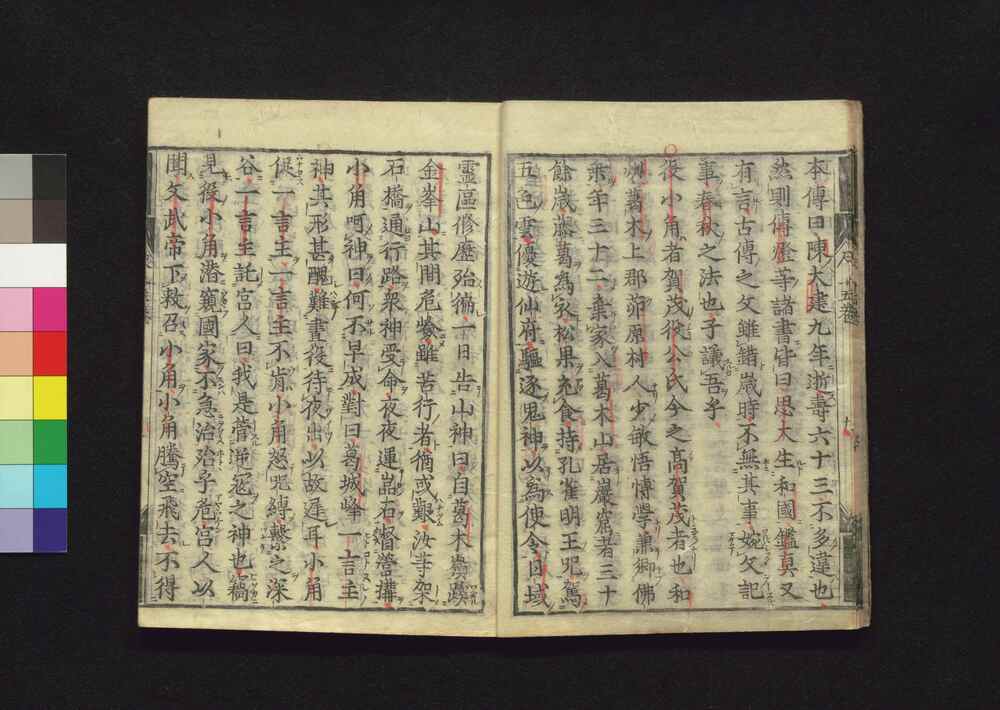 本傳曰陳大建九年逝壽六十三不多違也
然則傳燈等諸書皆曰思大生和國鑑真又
有言古傳之文雖錯歲時不無其事婉欠記
事春秋之法也子議吾乎
役小角者賀茂役公氏今之高賀茂者也和
州葛木上郡茆原村人少敏悟博學兼鄉佛
乘年三十二棄家入葛木山居巖窟者三十
餘歲藤葛為衣松果充食持孔雀明王咒駕
五色雲優遊仙府驅逐鬼神以為使令日域
靈區修歷殆徧一日告山神曰自葛木嶺蹊
金峯山其間危嶮雖苦行者猶或艱汝等架
石橋通行路衆神受命夜夜運巖石督營搆
小角呵神曰何不早成對曰葛城峰一言主
神其形甚醜難晝役待夜出以故遲耳小角
促一言主一言主不肯小角怒咒縛繫之深
谷一言主託宮人曰我是管逆寇之神也竊
見役小角潜窺國家不急治殆乎危宮人以
聞文武帝下敕召小角小角騰空飛去不得